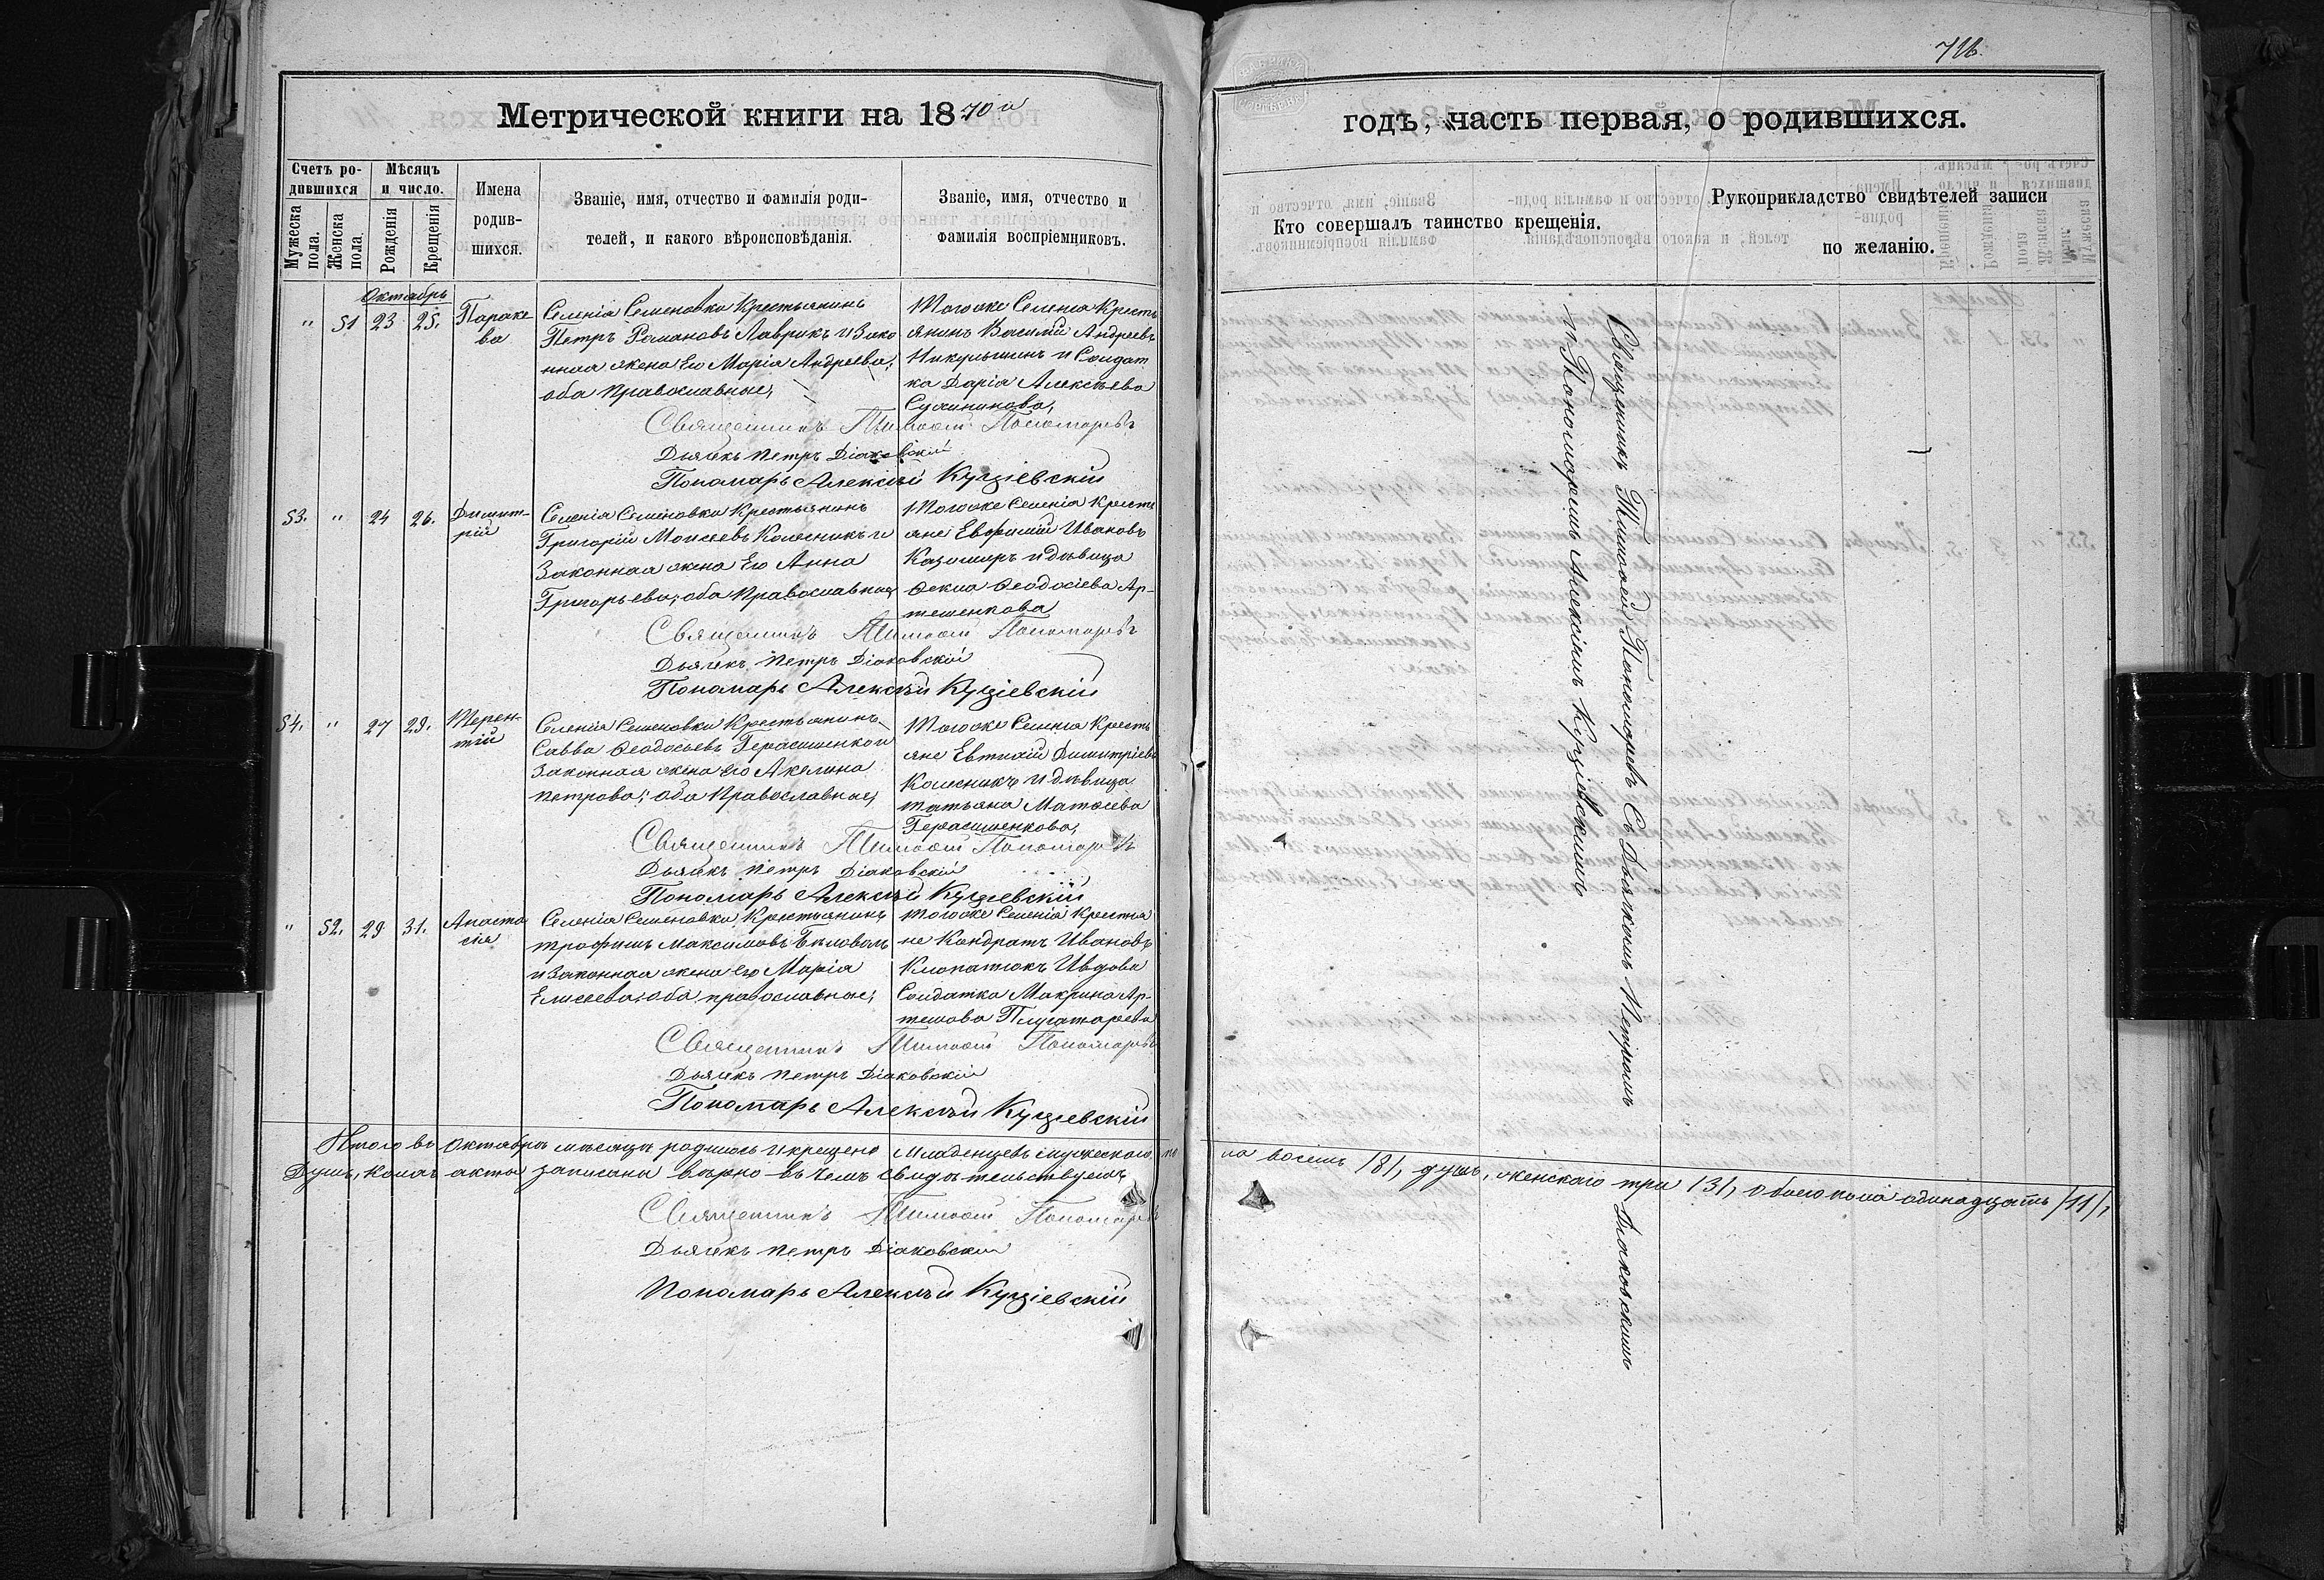 Метрической книги на 1870й
Счетъ родившихся
Мужеска пола.
Женска пола.
Мѣсяцъ и число.
Рожденія
Крещенія
Имена родившихся.
Званіе, имя, отчество и фамилія родителей, и какого вѣроисповѣданія.
Званіе, имя, отчество и фамилія воспріемниковъ.
Октябрь
" 51 23 25.
Параке
ва
Селенія Семеновки Крестьянинъ
Петръ Романовъ Лаврикъ и Зако
нная жена Его Марія Андреева;
оба Православные,
Того же Селенія Кресть
янинъ Василій Андреевъ
Никульшинъ и Солдат
ка Дарія Алексѣева
Священникъ Тимоѳей Пономаревъ
Дьячекъ Петръ Діаковскій
Пономарь Алексѣй
53. " 24 26.
Димит-
рій
Селенія Семеновки Крестьянинъ
Григорій Моисеевъ Колесникъ и
Законная жена Его Анна
Григорьева; оба Православные,
Того же Селенія Кресть
яне Евфимій Ивановъ
Казомиръ и дѣвица
Ѳекла Ѳеодосіева Ар-
тешенкова
Священникъ Тимоѳей Пономаревъ
Дьячекъ Петръ Діаковскій
Пономарь Алексѣй
54. " 27 29.
Терен-
тій
Селенія Семеновки Крестьянинъ
Савва Ѳеодосьевъ Герасименко и
Законная жена Его Акелина
Петрова; оба Православные,
Того же Селенія Кресть
яне Евтихій Димитріевъ
Колесникъ и дѣвица
Татьяна Матѳеева
Герасименкова,
Священникъ Тимоѳей Пономаревъ
Дьячекъ Петръ Діаковскій
Пономарь Алексѣй
" 52. 29 31.
Анаста
сія
Селенія Семеновки Крестьянинъ
Трофимъ Максимовъ Бѣловолъ
и Законная жена Его Марія
Елисеева; оба православные;
Того же Селенія Крестья
не Кондратъ Ивановъ
Клопатюкъ и вдова
Солдатка Макрина Ар-
темова Плугатарева
Священникъ Тимоѳей Пономаревъ
Дьячекъ Петръ Діаковскій
Пономарь Алексѣй
Итого въ Октябрѣ мѣсяцѣ родилось и крещено Младенцевъ мужескаго по
Душъ, коихъ акты записаны вѣрно въ чемъ свидѣтельствуемъ
Священникъ Тимоѳей Пономаревъ
Дьячекъ Петръ Діаковскій
Пономарь Алексѣй
726.
годъ, часть первая, о родившихся.
Кто совершалъ таинство крещенія.
Рукоприкладство свидѣтелей записи по желанію.
Священникъ Тимоѳей Пономаревъ Съ Дьячкомъ Петромъ Діаковскимъ
и Пономаремъ Алексіемъ
ла восемь /8/, душъ, женскаго три /3/, обоего пола одинадцать /11/,